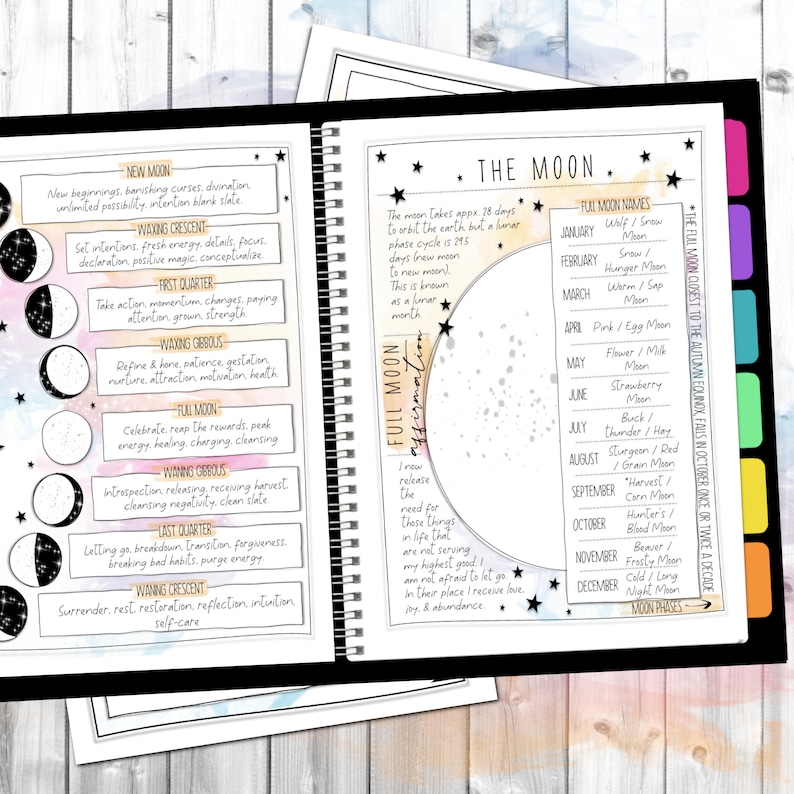 NEW MOON
New beginnings, banishing curses, divination,
unlimited possibility, intention blank slate.
WAXING CRESCENT
Set intentions, fresh energy, details, focus,
declaration, positive magic, conceptualize.
FIRST QUARTER
Take action, momentum, changes, paying
attention, grown, strength.
WAXING GIBBOUS
Refine & hone, patience, gestation,
nurture, attraction, motivation, health.
FULL MOON
Celebrate, reap the rewards, peak
energy, healing, charging, cleansing
WANING GIBBOUS
Introspection, releasing, receiving harvest,
cleansing negativity, clean slate.
LAST QUARTER
Letting go, breakdown, transition, forgiveness,
breaking bad habits, purge energy.
WANING CRESCENT
Surrender, rest, restoration, reflection, intuition,
self-care
THE MOON
The moon takes appx. 28 days
to orbit the earth, but a lunar
phase cycle is 29.5
days (new moon
to new moon).
This is known
as a lunar
month.
FULL MOON
affirmation
I now
release
the
need for
those things
in life that
are not serving
my highest good. I
am not afraid to let go.
In their place I receive love,
joy, & abundance.
FULL MOON NAMES
JANUARY Wolf / Snow
Moon
FEBRUARY Snow /
Hunger Moon
MARCH Worm / Sap
Moon
APRIL Pink / Egg Moon
MAY Flower / Milk
Moon
JUNE Strawberry
Moon
JULY Buck /
thunder / Hay
AUGUST Sturgeon / Red
/ Grain Moon
SEPTEMBER *Harvest /
Corn Moon
OCTOBER Hunter's /
Blood Moon
NOVEMBER Beaver /
Frosty Moon
DECEMBER Cold / Long
Night Moon
*THE FULL MOON CLOSES TO THE AUTUMN EQUINOX, FALLS IN OCTOBER ONCE OR TWICE A DECADE
MOON PHASES